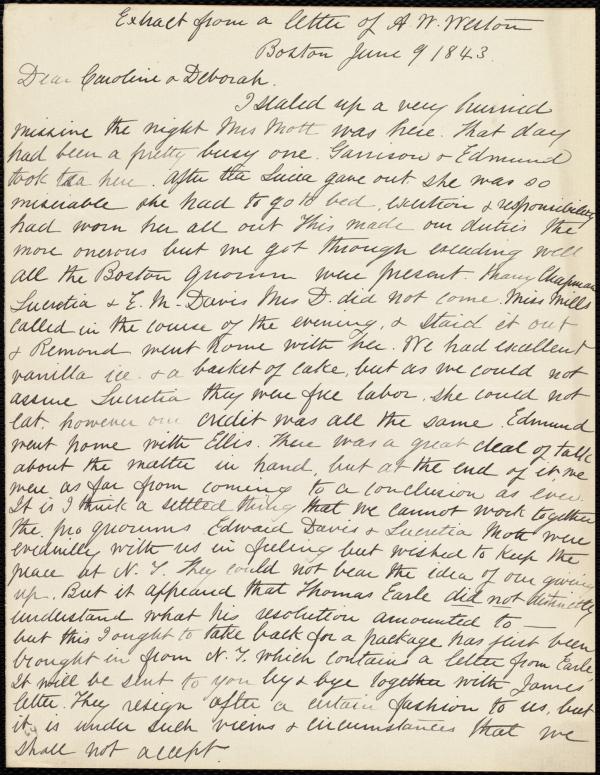 Extract from a letter of A. W. Weston
Boston June 9 1843.
Dear Caroline & Deborah.
I sealed up a very hurried
missive the night Mrs Mott was here. That day
had been a pretty busy one. Garrison & Edmund
took tea here. After tea Lucia gave out. she was so
miserable she had to go to bed, exertion & responsibility
had worn her all out. This made our duties the
more onerous but we got through exceeding well
all the Boston quorum were present. Mary Chapman
Lucretia & E. M. Davis Mrs D. did not come. Miss Mills
called in the course of the evening, & staid it out
& Remond went home with her. We had excellent
vanilla ice. & a basket of cake, but as we could not
assure Lucretia they were free labor, she could not
eat. however our credit was all the same. Edmund
went home with Ellis. There was a great deal of talk
about the matter in hand, but at the end of it, we
were as far from coming to a conclusion as ever.
It is I think a settled thing that we cannot work together
the pro quorums Edward Davis & Lucretia Mott were
evidently with us in feeling but wished to keep the
peace at N. Y. They could not bear the idea of our giving
up. But it appeared that Thomas Earle did not distinctly
understand what his resolution amounted to —
but this I ought to take back for a package has just been
brought in from N. Y. which contains a letter from Earle
It will be sent to you by & bye together with James'
letter. They resign after a certain fashion to us, but
it is under such views & circumstances that we
shall not accept.